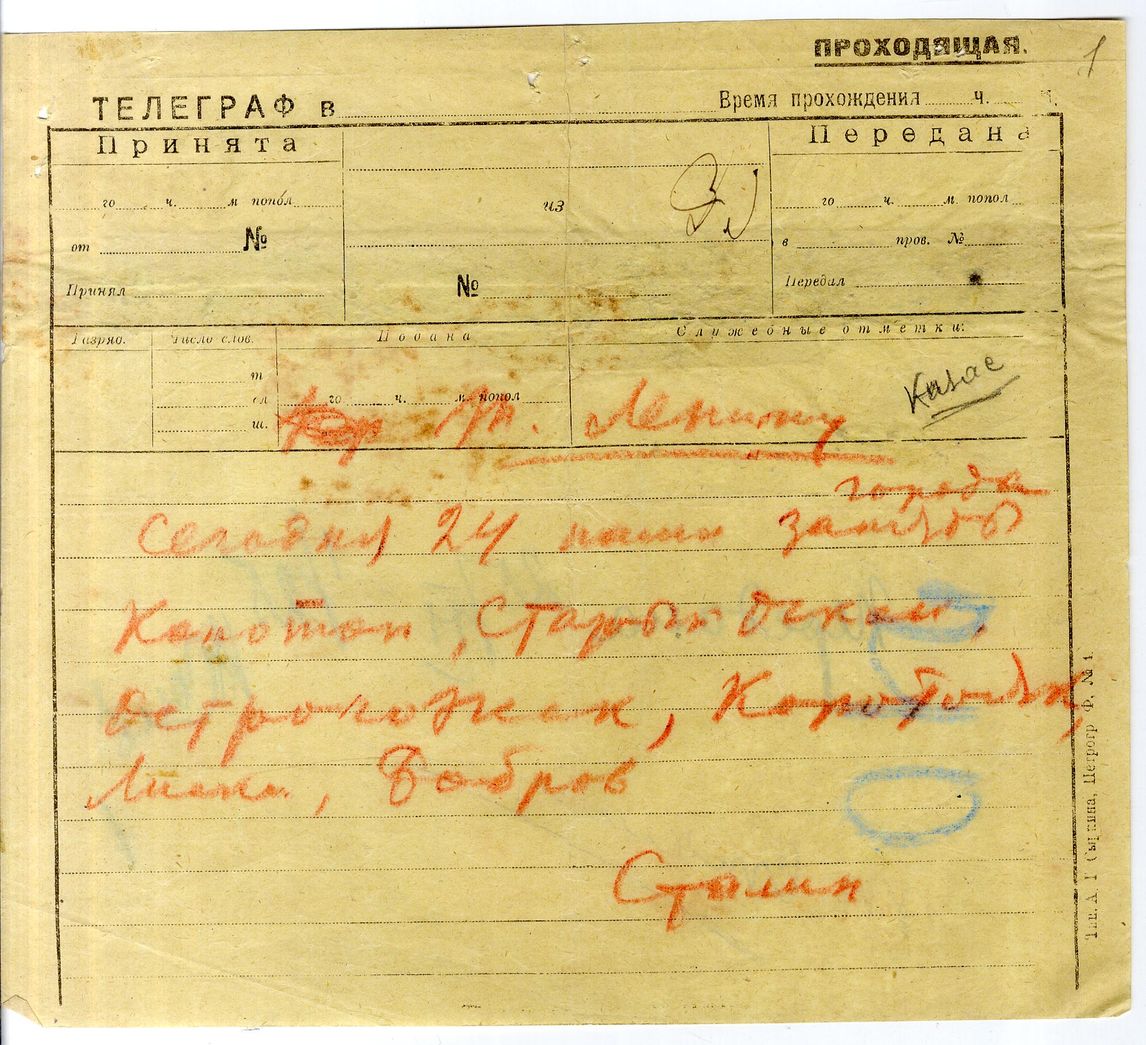 ПРОХОДЯЩАЯ.
1
ТЕЛЕГРАФ в
Время прохождения ч. м.
Принята
Передана
го ч. м попол
из
го ч. м. попол
от №
в пров. №
Принял
№
Передал
Разряд.
Число слов.
Подана
Служебные отметки:
т
сл
ш.
го ч. м. попол
Ленину
города
Сегодня 24 наши заняты
Касторн, Старый Оскол,
Острогожск, Коротояк,
Лиски, Бобров
Сталин
Тип. А. Г Сыркина, Петрогр Ф. № 1